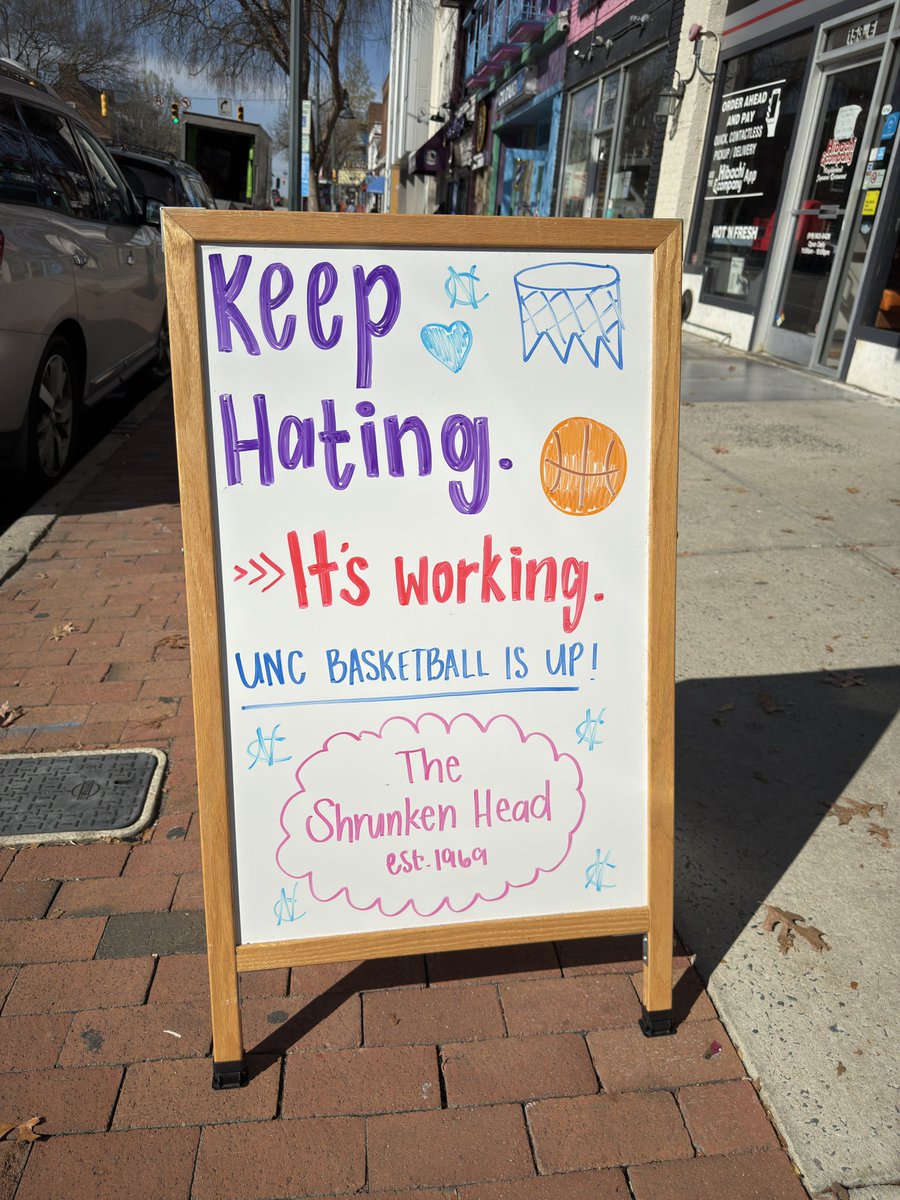 Keep
Hating.
>>>It's working.
UNC BASKETBALL IS UP!
The
Shrunken Head
est. 1969
NC
NC
NC
NC
NC
153 E
ORDER AHEAD
AND PAY
QUICK, CONTACTLESS
PICKUP / DELIVERY
USE THE
Hibachi App
&Company
HOT 'N FRESH
Hibachi
&Company
Open Daily